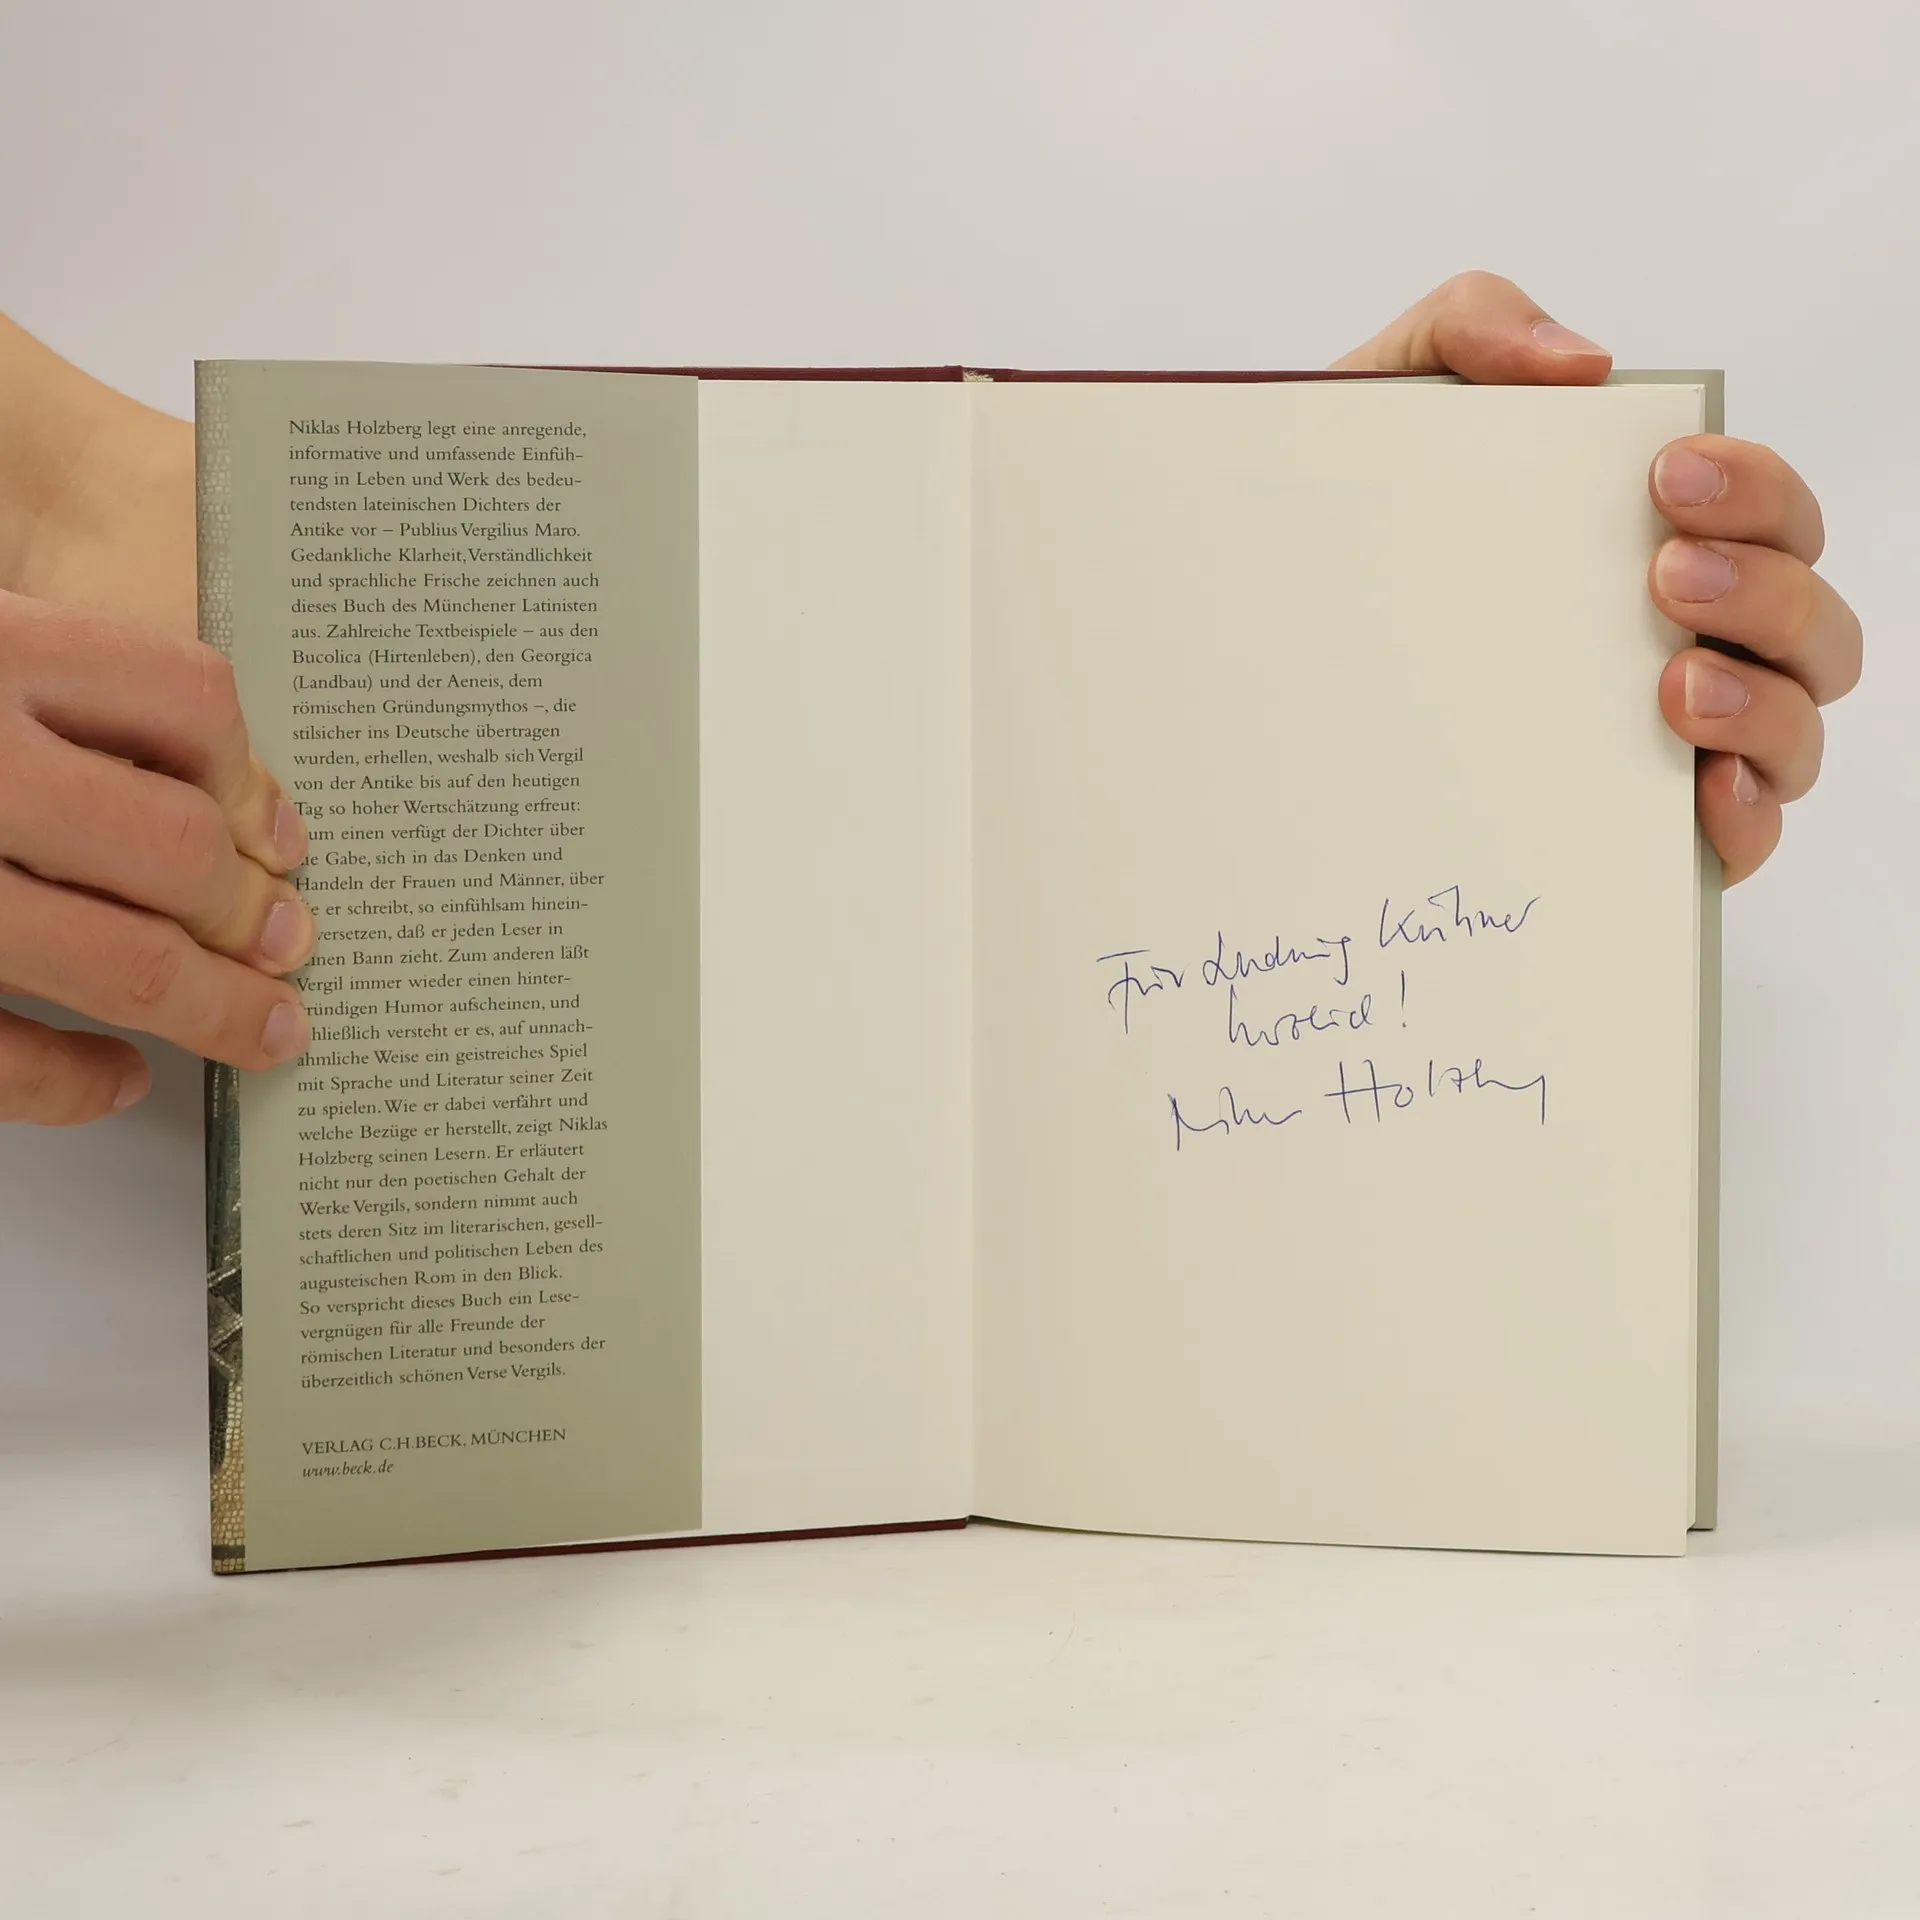 Niklas Holzberg legt eine anregende,
informative und umfassende Einfüh-
rung in Leben und Werk des bedeu-
tendsten lateinischen Dichters der
Antike vor – Publius Vergilius Maro.
Gedankliche Klarheit, Verständlichkeit
und sprachliche Frische zeichnen auch
dieses Buch des Münchener Latinisten
aus. Zahlreiche Textbeispiele – aus den
Bucolica (Hirtenleben), den Georgica
(Landbau) und der Aeneis, dem
römischen Gründungsmythos –, die
stilsicher ins Deutsche übertragen
wurden, erhellen, weshalb sich Vergil
von der Antike bis auf den heutigen
Tag so hoher Wertschätzung erfreut:
um einen verfügt der Dichter über
ie Gabe, sich in das Denken und
Handeln der Frauen und Männer, über
e er schreibt, so einfühlsam hinein-
versetzen, daß er jeden Leser in
inen Bann zieht. Zum anderen läßt
Vergil immer wieder einen hinter-
ründigen Humor aufscheinen, und
hließlich versteht er es, auf unnach-
ahmliche Weise ein geistreiches Spiel
mit Sprache und Literatur seiner Zeit
zu spielen. Wie er dabei verfährt und
welche Bezüge er herstellt, zeigt Niklas
Holzberg seinen Lesern. Er erläutert
nicht nur den poetischen Gehalt der
Werke Vergils, sondern nimmt auch
stets deren Sitz im literarischen, gesell-
schaftlichen und politischen Leben des
augusteischen Rom in den Blick.
So verspricht dieses Buch ein Lese-
vergnügen für alle Freunde der
römischen Literatur und besonders der
überzeitlich schönen Verse Vergils.
VERLAG C.H.BECK, MÜNCHEN
www.beck.de
Für Ludwig Kühner
herzlich!
Niklas Holzberg